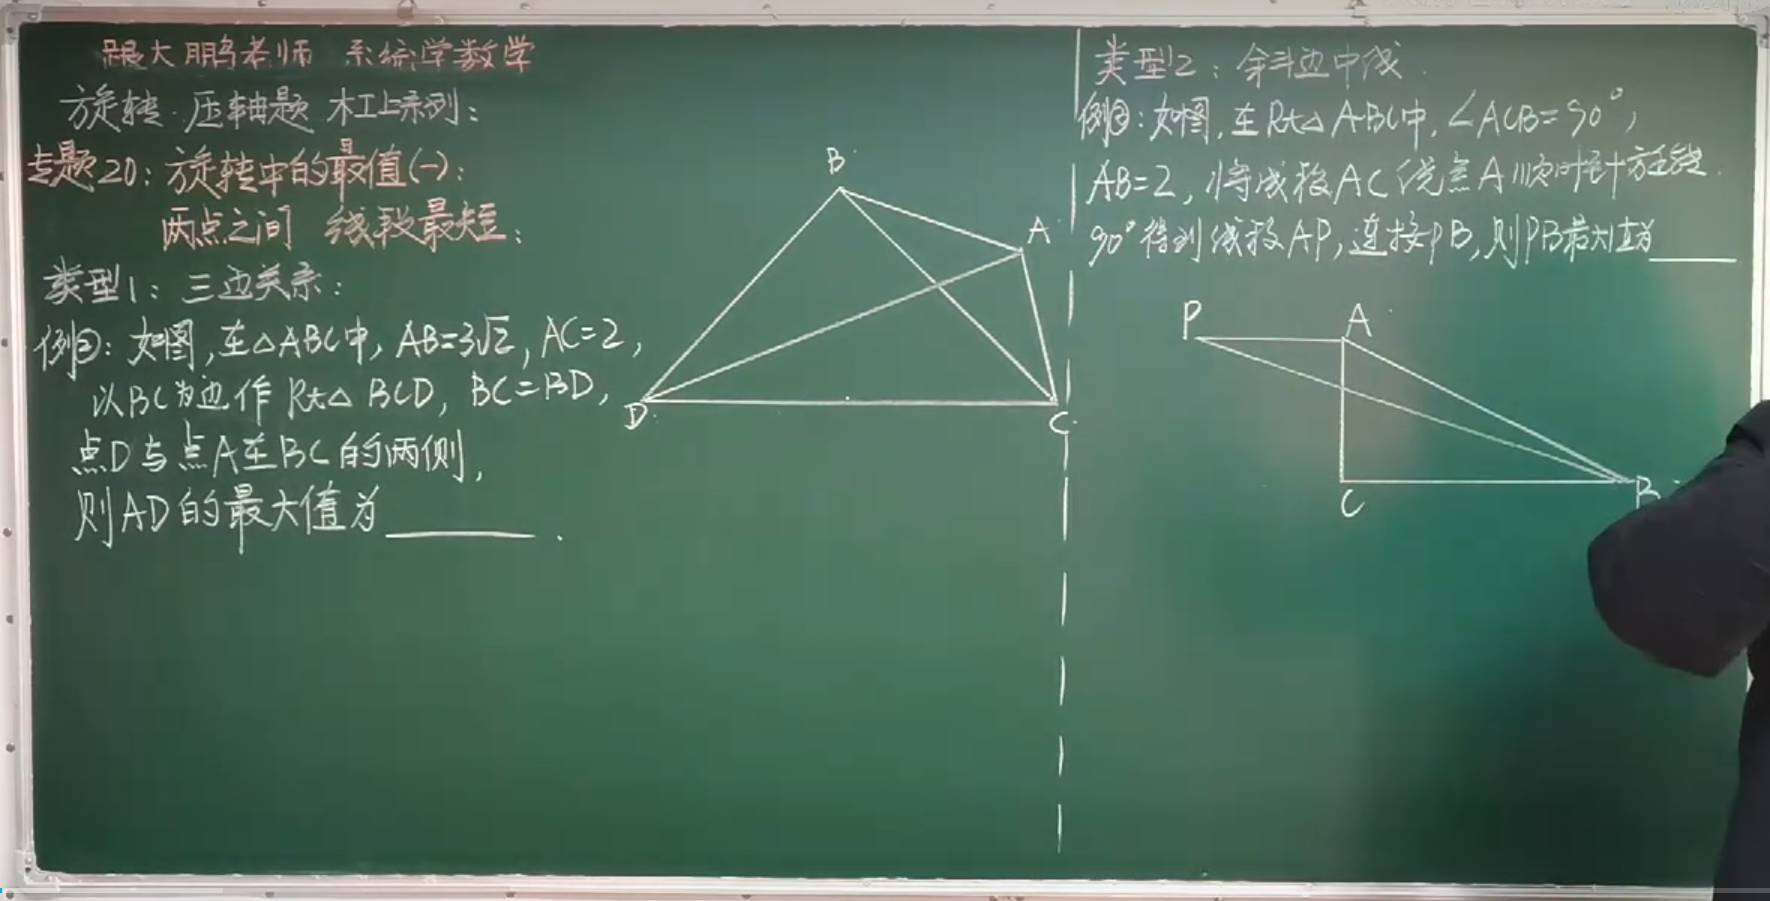 跟大鹏老师 系统学数学
旋转·压轴题 木工上系列:
专题20: 旋转中的最值(一):
两点之间 线段最短;
类型1: 三边关系:
例②: 如图,在△ABC中, AB=3√2, AC=2,
以BC为边作 Rt△ BCD, BC=BD,
点D与点A在BC的两侧,
则AD的最大值为______.
B
A
D
C
类型2: 斜边中线
例③: 如图,在Rt△ABC中,∠ACB=90°,
AB=2,将线段AC绕点A顺时针方旋转
90°得到线段AP,连接PB,则PB最大值为______
P
A
C
B